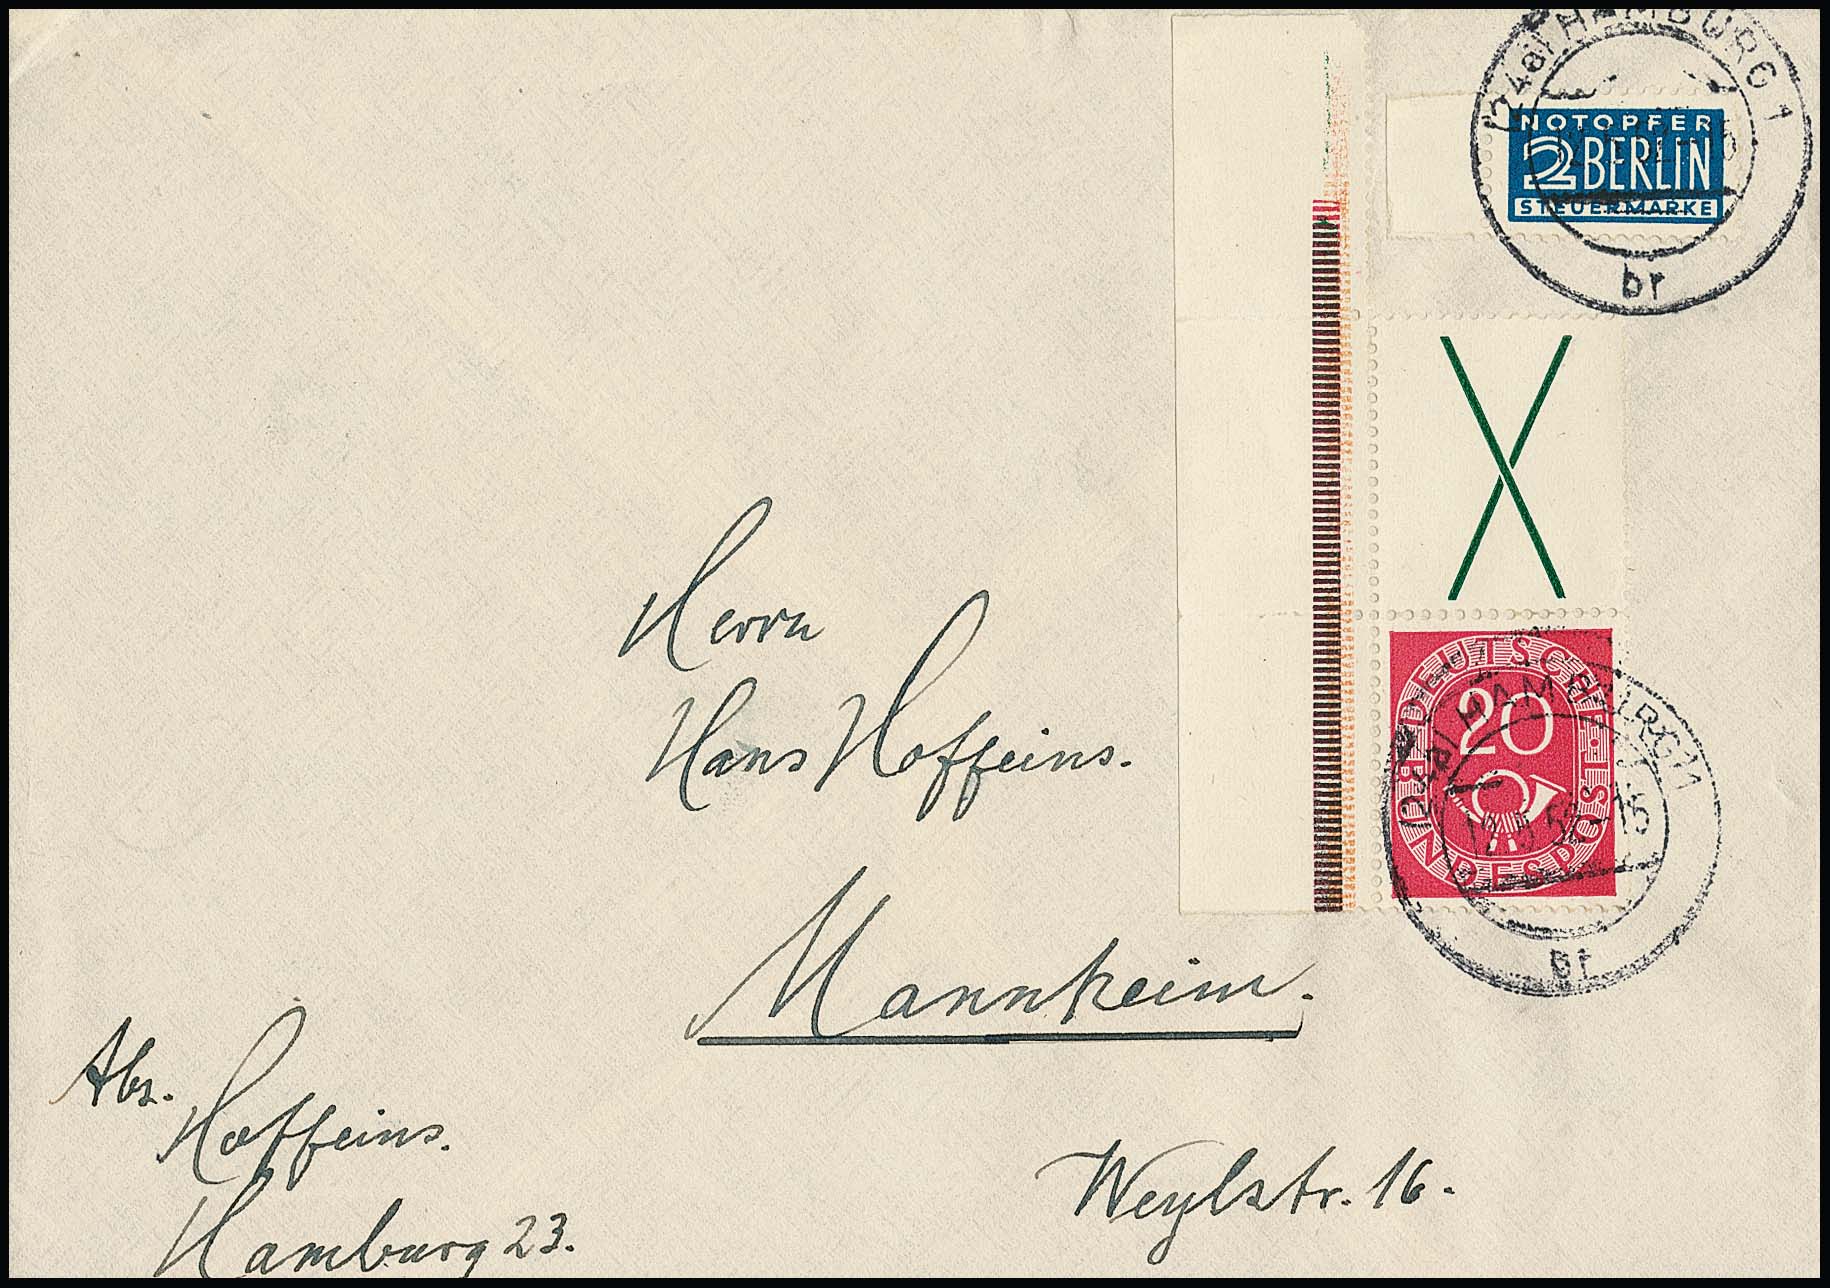 (24a) HAMBURG 1
NOTOPFER
2 BERLIN
STEUERMARKE
br
DEUTSCHE
BUNDESPOST
20
(24a) HAMBURG 1
br
Herrn
Hans Hoffeins.
Mannheim.
Weylstr. 16.
Abs.
Hoffeins.
Hamburg 23.